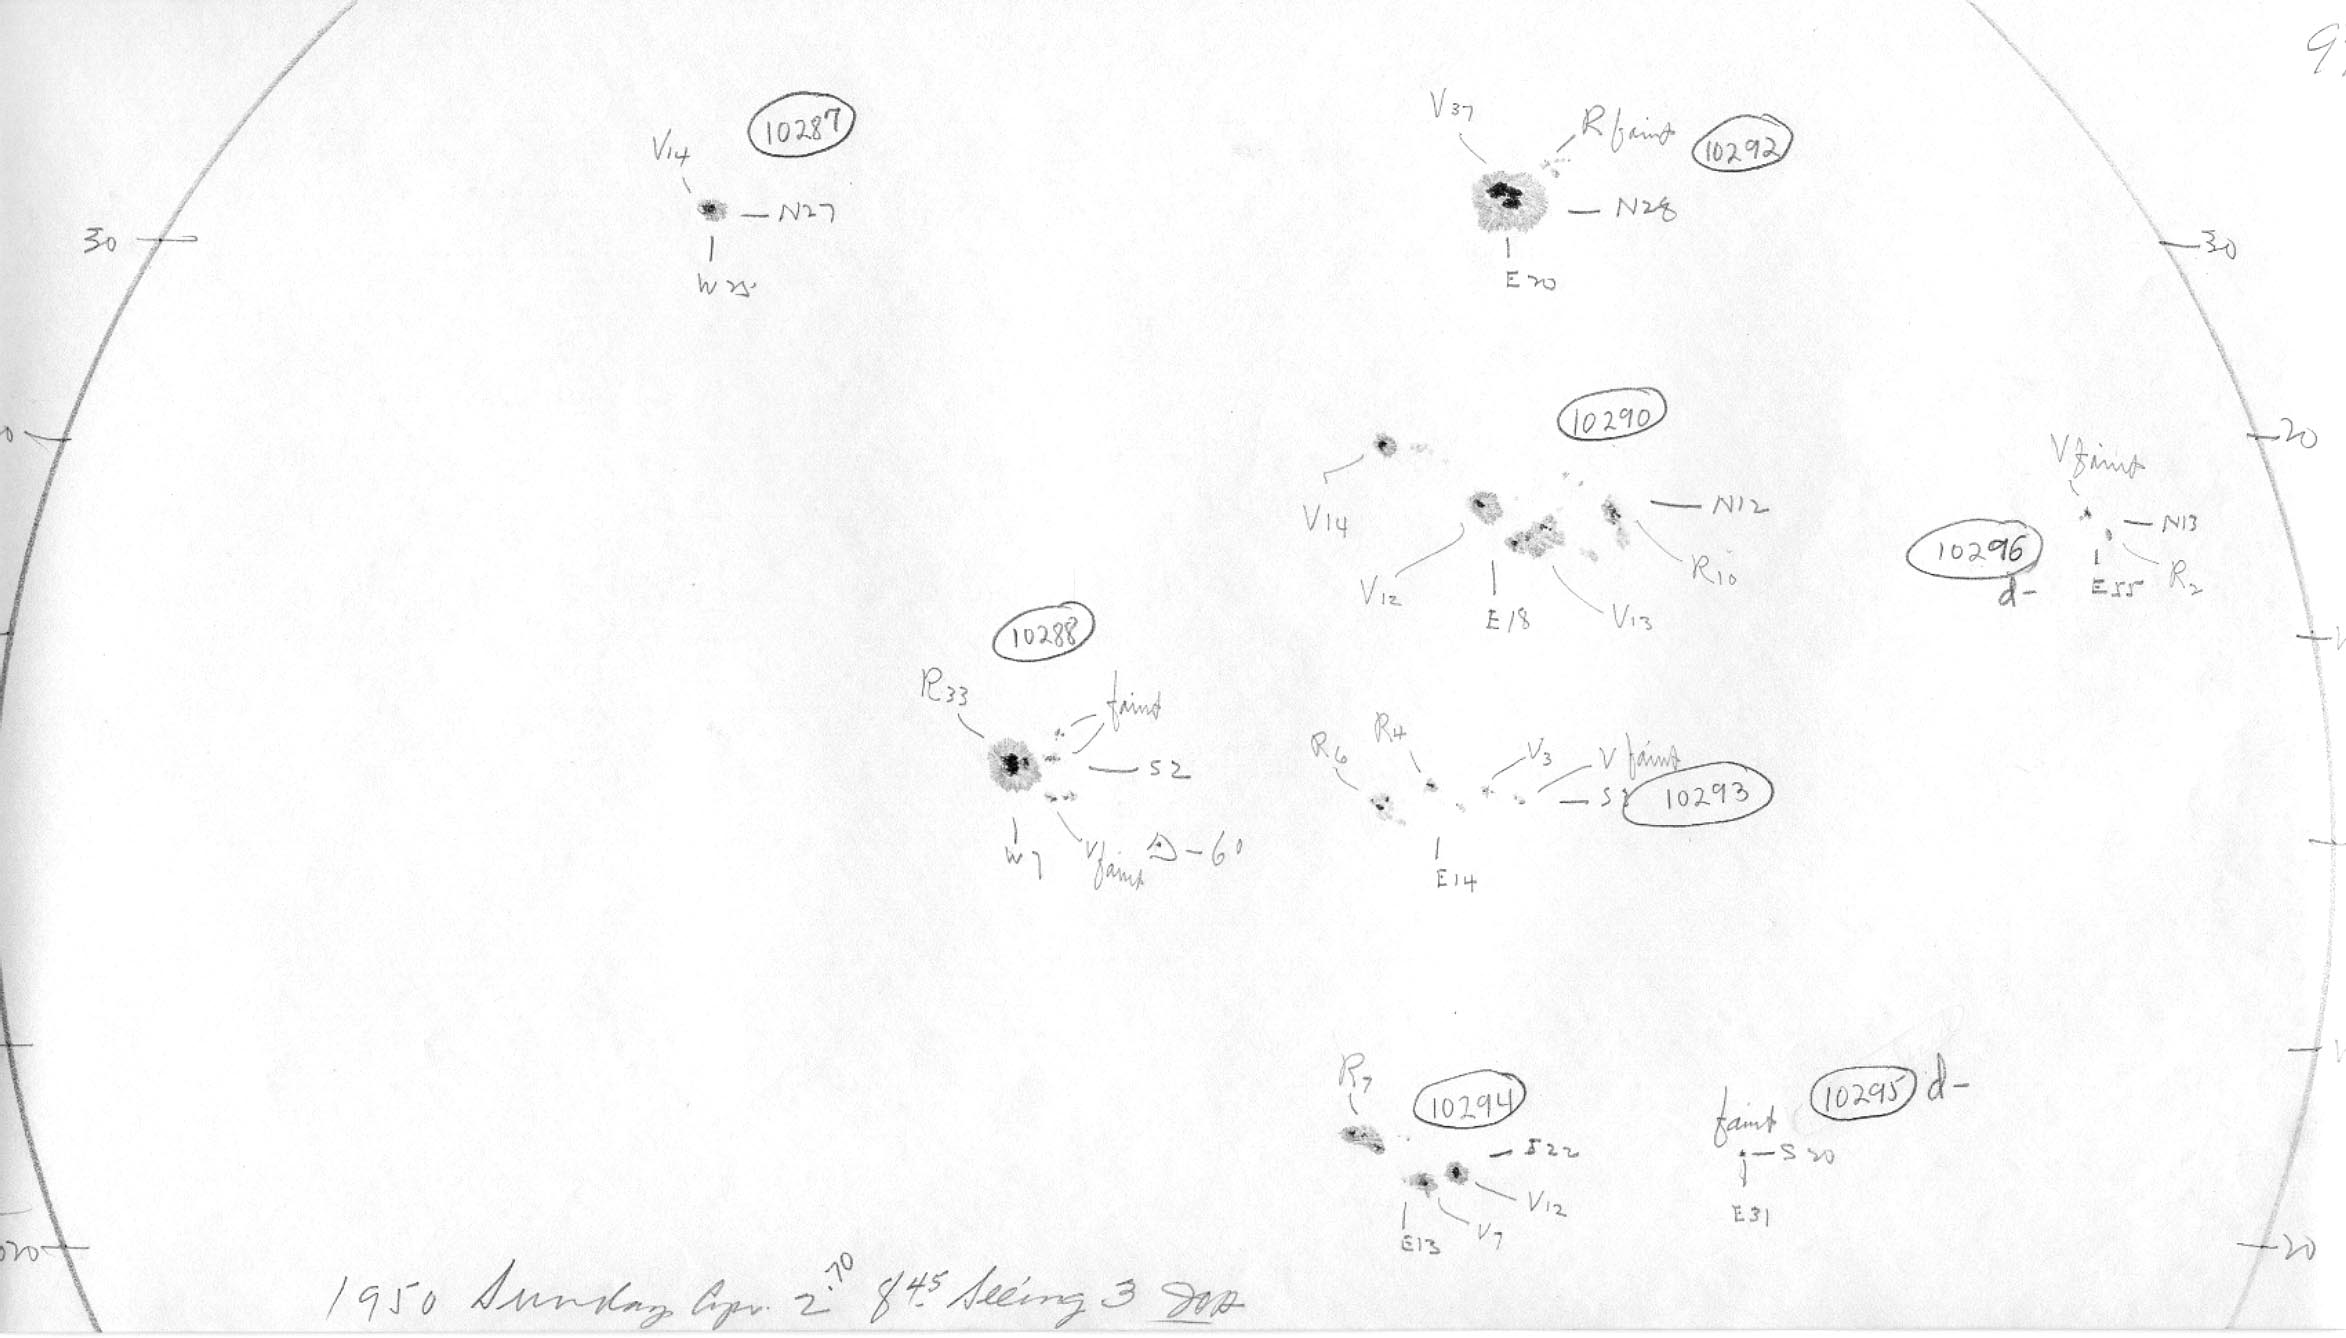 10287
V14
N27
W25
V37
R faint
10292
N28
E20
30
30
10290
V14
N12
V12
R10
E18
V13
20
V faint
N13
10296
d-
E55
R2
10288
R33
faint
S2
W7
V faint
R6
R4
V3
V faint
10293
E14
R7
10294
S22
V12
V7
E13
10295 d-
faint
S20
E31
20
20
1950 Sunday Apr. 2.70 8 45 Seeing 3